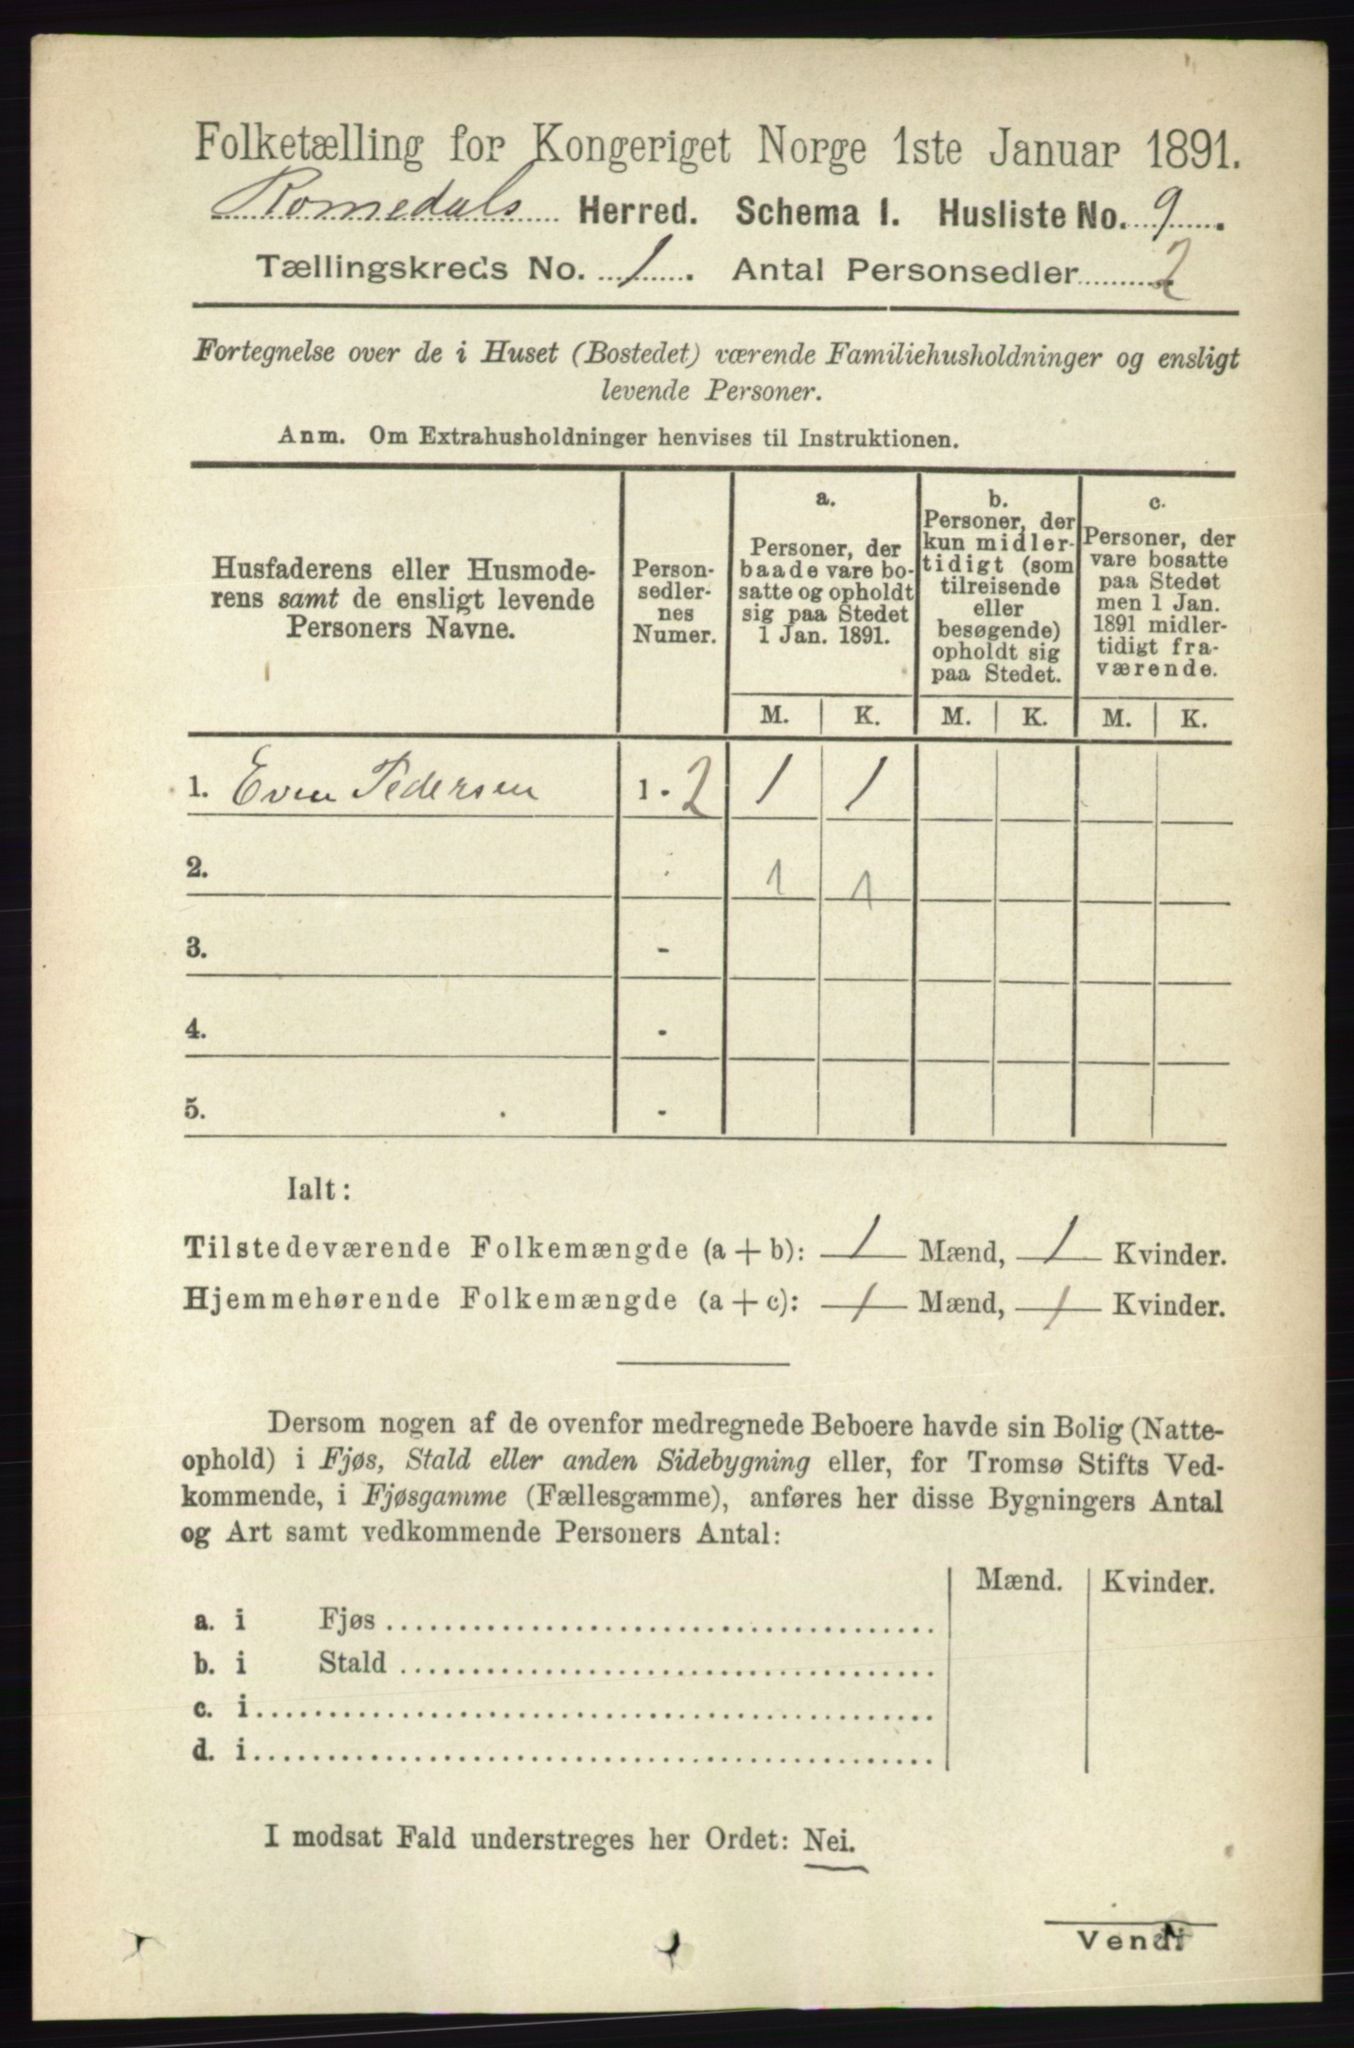 Folketælling for Kongeriget Norge 1ste Januar 1891.
Romedals Herred. Schema I. Husliste No. 9.
Tællingskreds No. 1. Antal Personsedler 2
Fortegnelse over de i Huset (Bostedet) værende Familiehusholdninger og ensligt
levende Personer.
Anm. Om Extrahusholdninger henvises til Instruktionen.
Husfaderens eller Husmode-
rens samt de ensligt levende
Personers Navne.
Person-
sedler-
nes
Numer.
a.
Personer, der
baade vare bo-
satte og opholdt
sig paa Stedet
1 Jan. 1891.
b.
Personer, der
kun midler-
tidigt (som
tilreisende
eller
besøgende)
opholdt sig
paa Stedet.
c.
Personer, der
vare bosatte
paa Stedet
men 1 Jan.
1891 midler-
tidigt fra-
værende.
M. K. M. K. M. K.
1. Even Pedersen 1 - 2 1 1
2. 1 1
3. -
4. -
5. -
Ialt:
Tilstedeværende Folkemængde (a + b): 1 Mænd, 1 Kvinder.
Hjemmehørende Folkemængde (a + c): 1 Mænd, 1 Kvinder.
Dersom nogen af de ovenfor medregnede Beboere havde sin Bolig (Natte-
ophold) i Fjøs, Stald eller anden Sidebygning eller, for Tromsø Stifts Ved-
kommende, i Fjøsgamme (Fællesgamme), anføres her disse Bygningers Antal
og Art samt vedkommende Personers Antal:
Mænd. Kvinder.
a. i Fjøs
b. i Stald
c. i
d. i
I modsat Fald understreges her Ordet: Nei.
Vend!